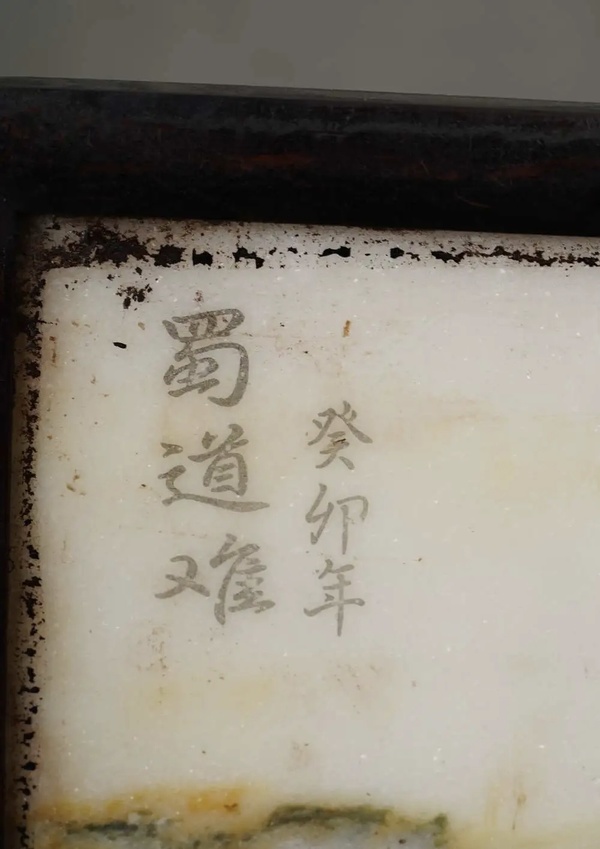 蜀道难
癸卯年